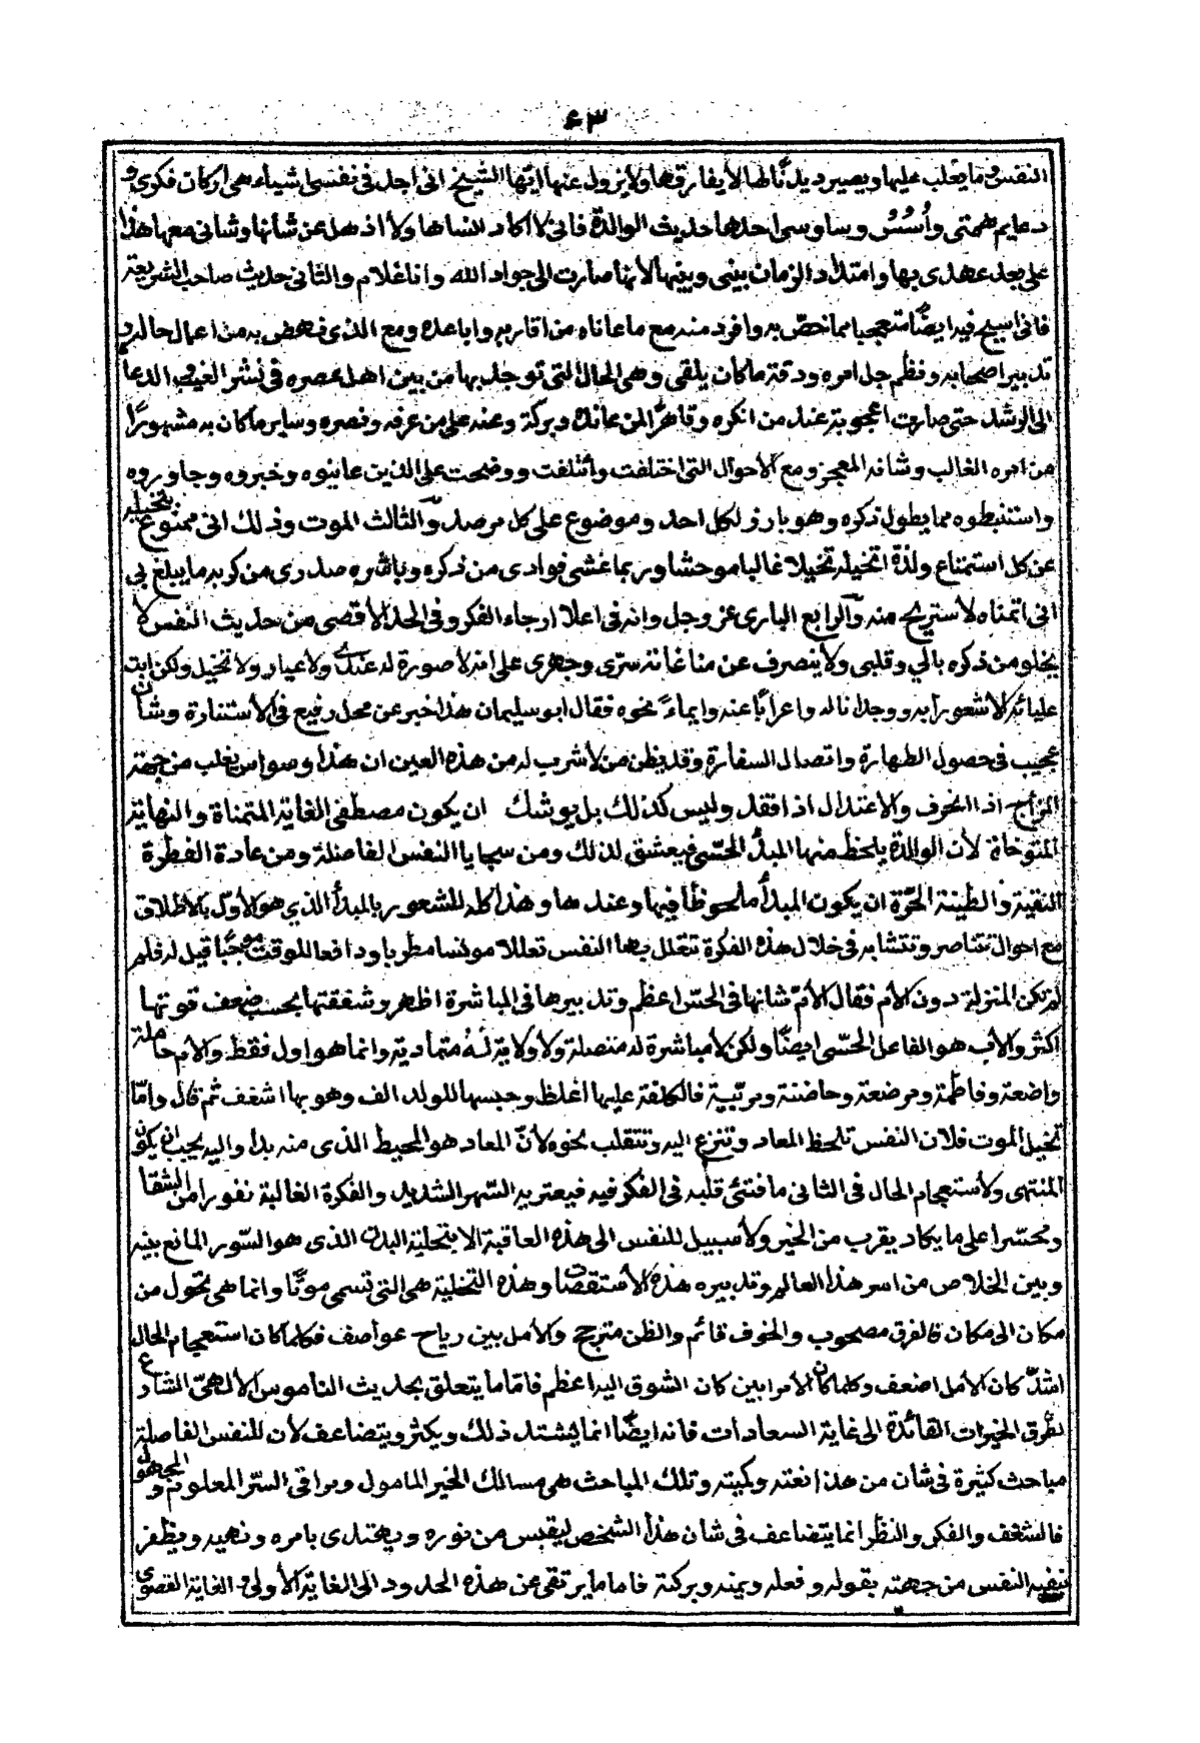 ٤٣
النفس وما يغلب عليها ويصير ديدنًا لها لا يفارقها ولا يزول عنها ايها الشيخ انى اجد فى نفسى اشياء هى اركان فكرى و
دعايم همتى وأُسُسُ وساوسى احدها حديث الوالدة فانى لا اكاد انساها ولا اذهل عن شانها وشانى معها هذا
على بعد عهدى بها وامتداد الزمان بينى وبينها لانها صارت الى جوار الله وانا غلام والثانى حديث صاحب الشريعة
فانى اسبح فيه ايضًا متعجبا مما خص به وافرد منه مع ما عاناه من اقاربه واباعده ومع الذى نهض به من اعمال حاله و
تدبير اصحابه ونظم جل امره ودقة ما كان يلقى وهى الحال التى توحد بها من بين اهل عصره فى نشر الغيب والدعا
الى الرشد حتى صارت اعجوبة عند من انكره وقاهرًا لمن عانده وبركة وعنه على من عرفه ونصره وساير ما كان به مشهورًا
من امره الغالب وشانه المعجز ومع الاحوال التى اختلفت وأتلفت ووضحت على الذين عاينوه وخبروه وجاوروه
واستنبطوه مما يطول ذكره وهو بارز لكل احد وموضوع على كل مرصد والثالث الموت وذلك انى ممنوع بتخيله
عن كل استمتاع ولذة اتخيله تخيلا غالبا موحشا وربما غشى فوادى من ذكره وباشره صدرى من كربه ما يبلغ بى
انى اتمناه لاستريح منه والرابع البارى عز وجل وانه فى اعلا ارجاء الفكر وفى الحد الاقصى من حديث النفس لا
يخلو من ذكره بالي وقلبى ولا ينصرف عن مناغاته سرّى وجهرى على انه لا صورة له عندى ولا عيار ولا تخيل ولكن ابت
عليائه الا شعورا به ووجدانا له واعرابًا عنه وايماءً نحوه فقال ابو سليمان هذا خبر عن محل رفيع فى الاستنارة وشان
عجيب فى حصول الطهارة واتصال السفارة وقد يظن من لا شرب له من هذه العين ان هذا وسواس يغلب من جهة
المزاج اذا انحرف والاعتدال اذا فقد وليس كذلك بل يوشك ان يكون مصطفى الغاية المتمناة والنهاية
المتوخاة لان الوالدة يلحظ منها المبدأ الحسّى فيعشق لذلك ومن سجايا النفس الفاضلة ومن عادة الفطرة
النقية والطينة الحرّة ان يكون المبدأ ملحوظا فيها وعندها وهذا كله للشعور بالمبدأ الذي هو الاوّل بالاطلاق
مع احوال تتناصر وتتشابه فى خلال هذه الفكرة تتعلل بها النفس تعللا مونسا مطربا ودافعا للوقت موجبًا قيل له فلم
لم تكن المنزلة دون الام فقال الامّ شانها فى الحسّ اعظم وتدبيرها فى المباشرة اظهر وشفقتها بحسب ضعف قوتها
اكثر والاب هو الفاعل الحسّى ايضًا ولكن لا مباشرة له متصلة ولا ولاية لهُ متمادية وانما هو اول فقط والام حاملة
واضعة وفاطمة ومرضعة وحاضنة ومربّية فالكلفة عليها اغلظ وحبسها للولد الف وهو بها اشغف ثم قال وامّا
تخيل الموت فلان النفس تلحظ المعاد وتنزع اليه وتتقلب نحوه لانّ المعاد هو المحيط الذى منه بدأ واليه يجب ان يكون
المنتهى ولاستعجام الحال فى الثانى ما فتئى قلبه فى الفكر فيه فيعتريه السّهر الشديد والفكرة الغالبة نفورا من الشقا
وتحسّرا على ما يكاد يقرب من الخير ولا سبيل للنفس الى هذه العاقبة الا بتخلية البدن الذى هو السّور المانع بينه
وبين الخلاص من اسر هذا العالم وتدبيره هذه الاستقصات وهذه التخلية هى التى تسمى موتًا وانما هى تحول من
مكان الى مكان فالفرق مصحوب والخوف قائم والظن مترجح والامل بين رياح عواصف فكلما كان استعجام الحال
اشدّ كان الامل اضعف وكلما كان الامر ابين كان الشوق اليه اعظم فاما ما يتعلق بحديث الناموس الالهىّ الشارع
لطرق الخيرات القائدة الى غاية السعادات فانه ايضًا انما يشتد ذلك ويكثر ويتضاعف لان للنفس الفاضلة
مباحث كثيرة فى شان من هذا نعته وكميته وتلك المباحث هى مسالك الخير المامول ومراقى السّر المعلوم والمجهول
فالشغف والفكر والنظر انما يتضاعف فى شان هذا الشخص ليقبس من نوره ويهتدى بامره ونهيه ويظفر
بيقيه النفس من جهته بقوله وفعله ويمنه وبركة فاما ما يرتقى عن هذه الحدود الى الغاية الاولى والغاية القصوى